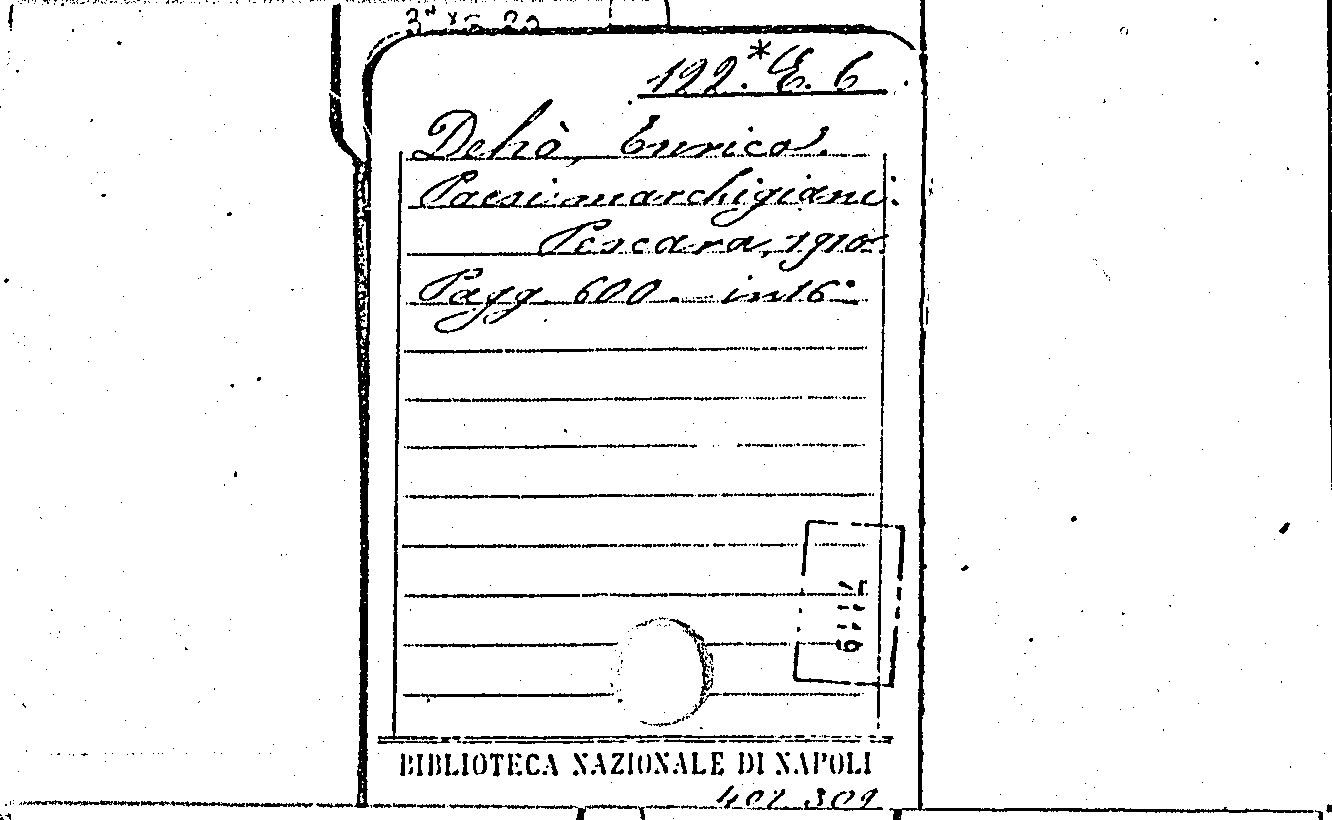 122.* E. 6
Dehò, Enrico.
Paesi marchigiani.
Pescara, 1910.
Pagg. 600. in 16°
BIBLIOTECA NAZIONALE DI NAPOLI
402 309